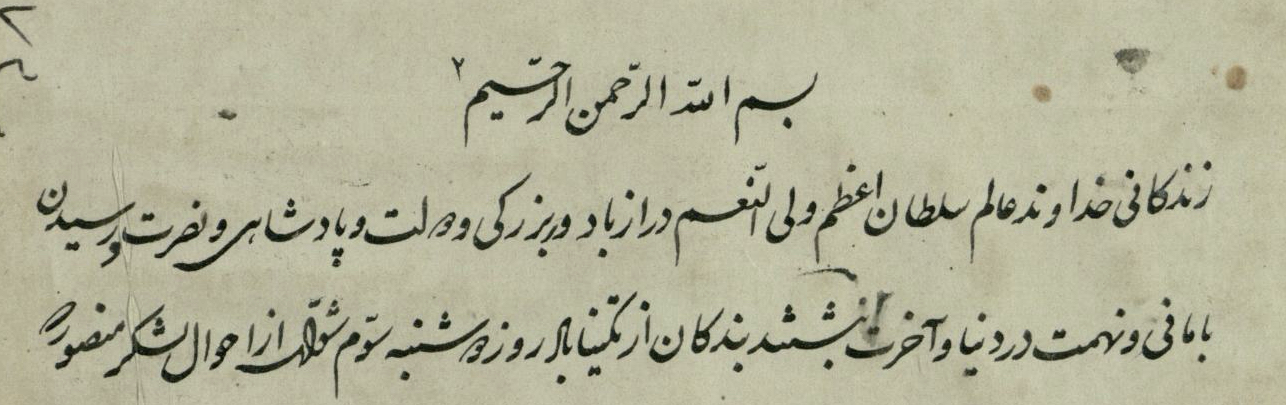 بسم الله الرّحمن الرّحیم
زندکانی خداوند عالم سلطان اعظم ولی النّعم دراز باد در بزرکی و دولت و پادشاهی و نصرت و رسیدن
بامانی و نهمت در دنیا و آخرت نبشتند بندکان از تکیناباد روز دوشنبه سوّم شوّال از احوال لشکر منصور